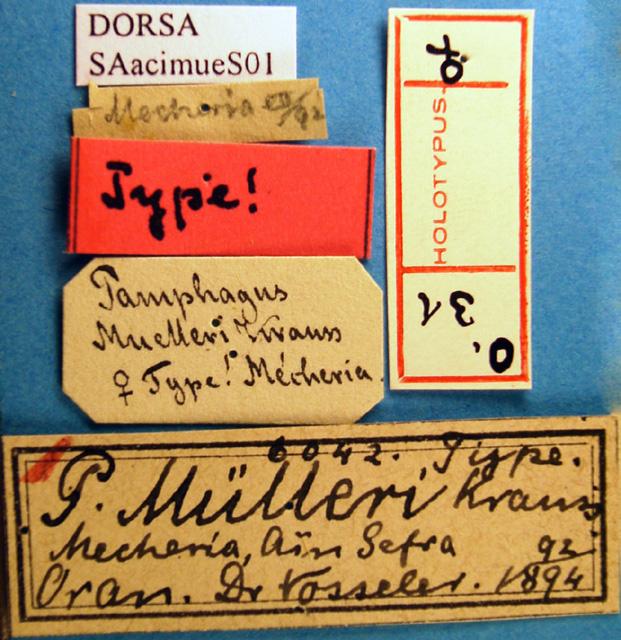 DORSA
SAacimueS01
Mecheria
Type!
Pamphagus
Muelleri Krauss
♀ Type! Mécheria.
HOLOTYPUS
♀
31
O.
6042. Type.
P. Mülleri Krauss
Mecheria, Aïn Sefra 92
Oran. Dr Vosseler. 1894